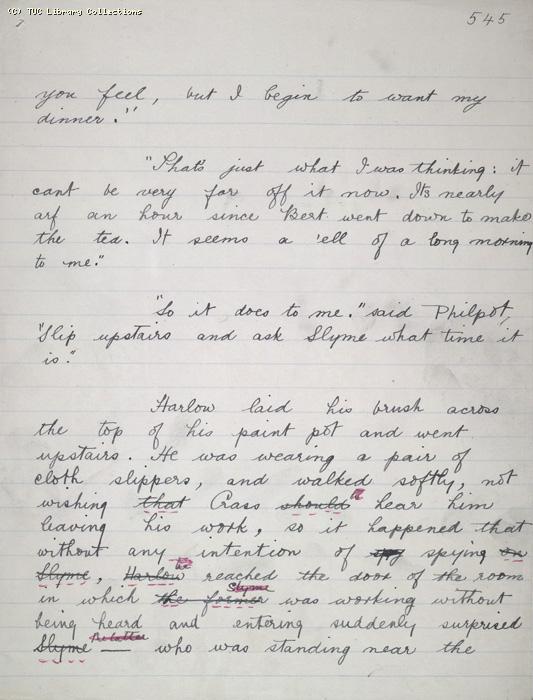 (C) TUC Library Collections
545
you feel, but I begin to want my
dinner."
"That's just what I was thinking: it
cant be very far off it now. Its nearly
arf an hour since Bert went down to make
the tea. It seems a 'ell of a long morning
to me."
"So it does to me." said Philpot,
"Slip upstairs and ask Slyme what time it
is."
Harlow laid his brush across
the top of his paint pot and went
upstairs. He was wearing a pair of
cloth slippers, and walked softly, not
wishing that Crass should hear him
leaving his work, so it happened that
without any intention of spy spying on
Slyme, Harlow he reached the door of the room
in which the former Slyme was working without
being heard and entering suddenly surprised
Slyme the latter who was standing near the